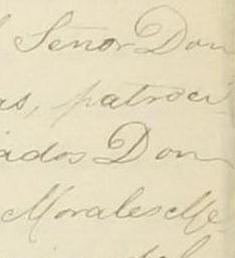 l Señor Don
as, patroci
ados Don
Morales Me
del